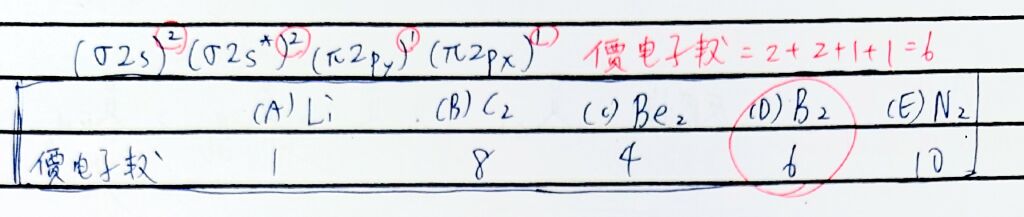 (σ2s)² (σ2s*)² (π2py)¹ (π2px)¹ 價電子数=2+2+1+1=6
(A) Li (B) C₂ (C) Be₂ (D) B₂ (E) N₂
價电子数 1 8 4 6 10